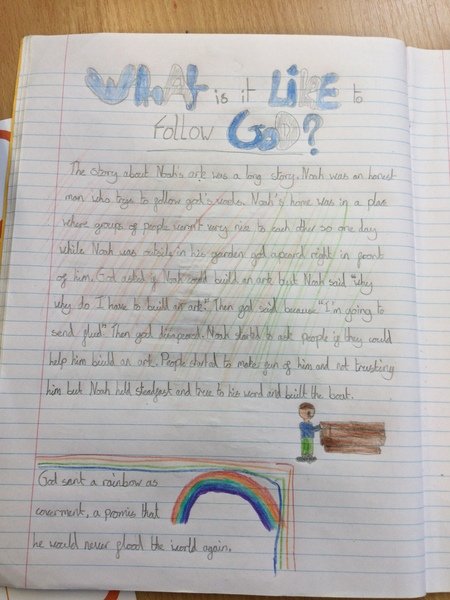 WHAt is it LiKE to
Follow GoD?
The story about Noah's ark was a long story. Noah was an honest
man who trys to follow god's words. Noah's home was in a place
where groups of people weren't very nice to each other so one day
while Noah was outside in his garden god apeard right in front
of him. God asked if Noah could build an ark but Noah said "why
why do I have to build an ark". Then god said because "I'm going to
send flud" Then god disapeared. Noah started to ask people if they could
help him build an ark. People started to make fun of him and not trusting
him but Noah held steadfast and true to his word and built the boat.
God sent a rainbow as
coverment, a promis that
he would never flood the world again.